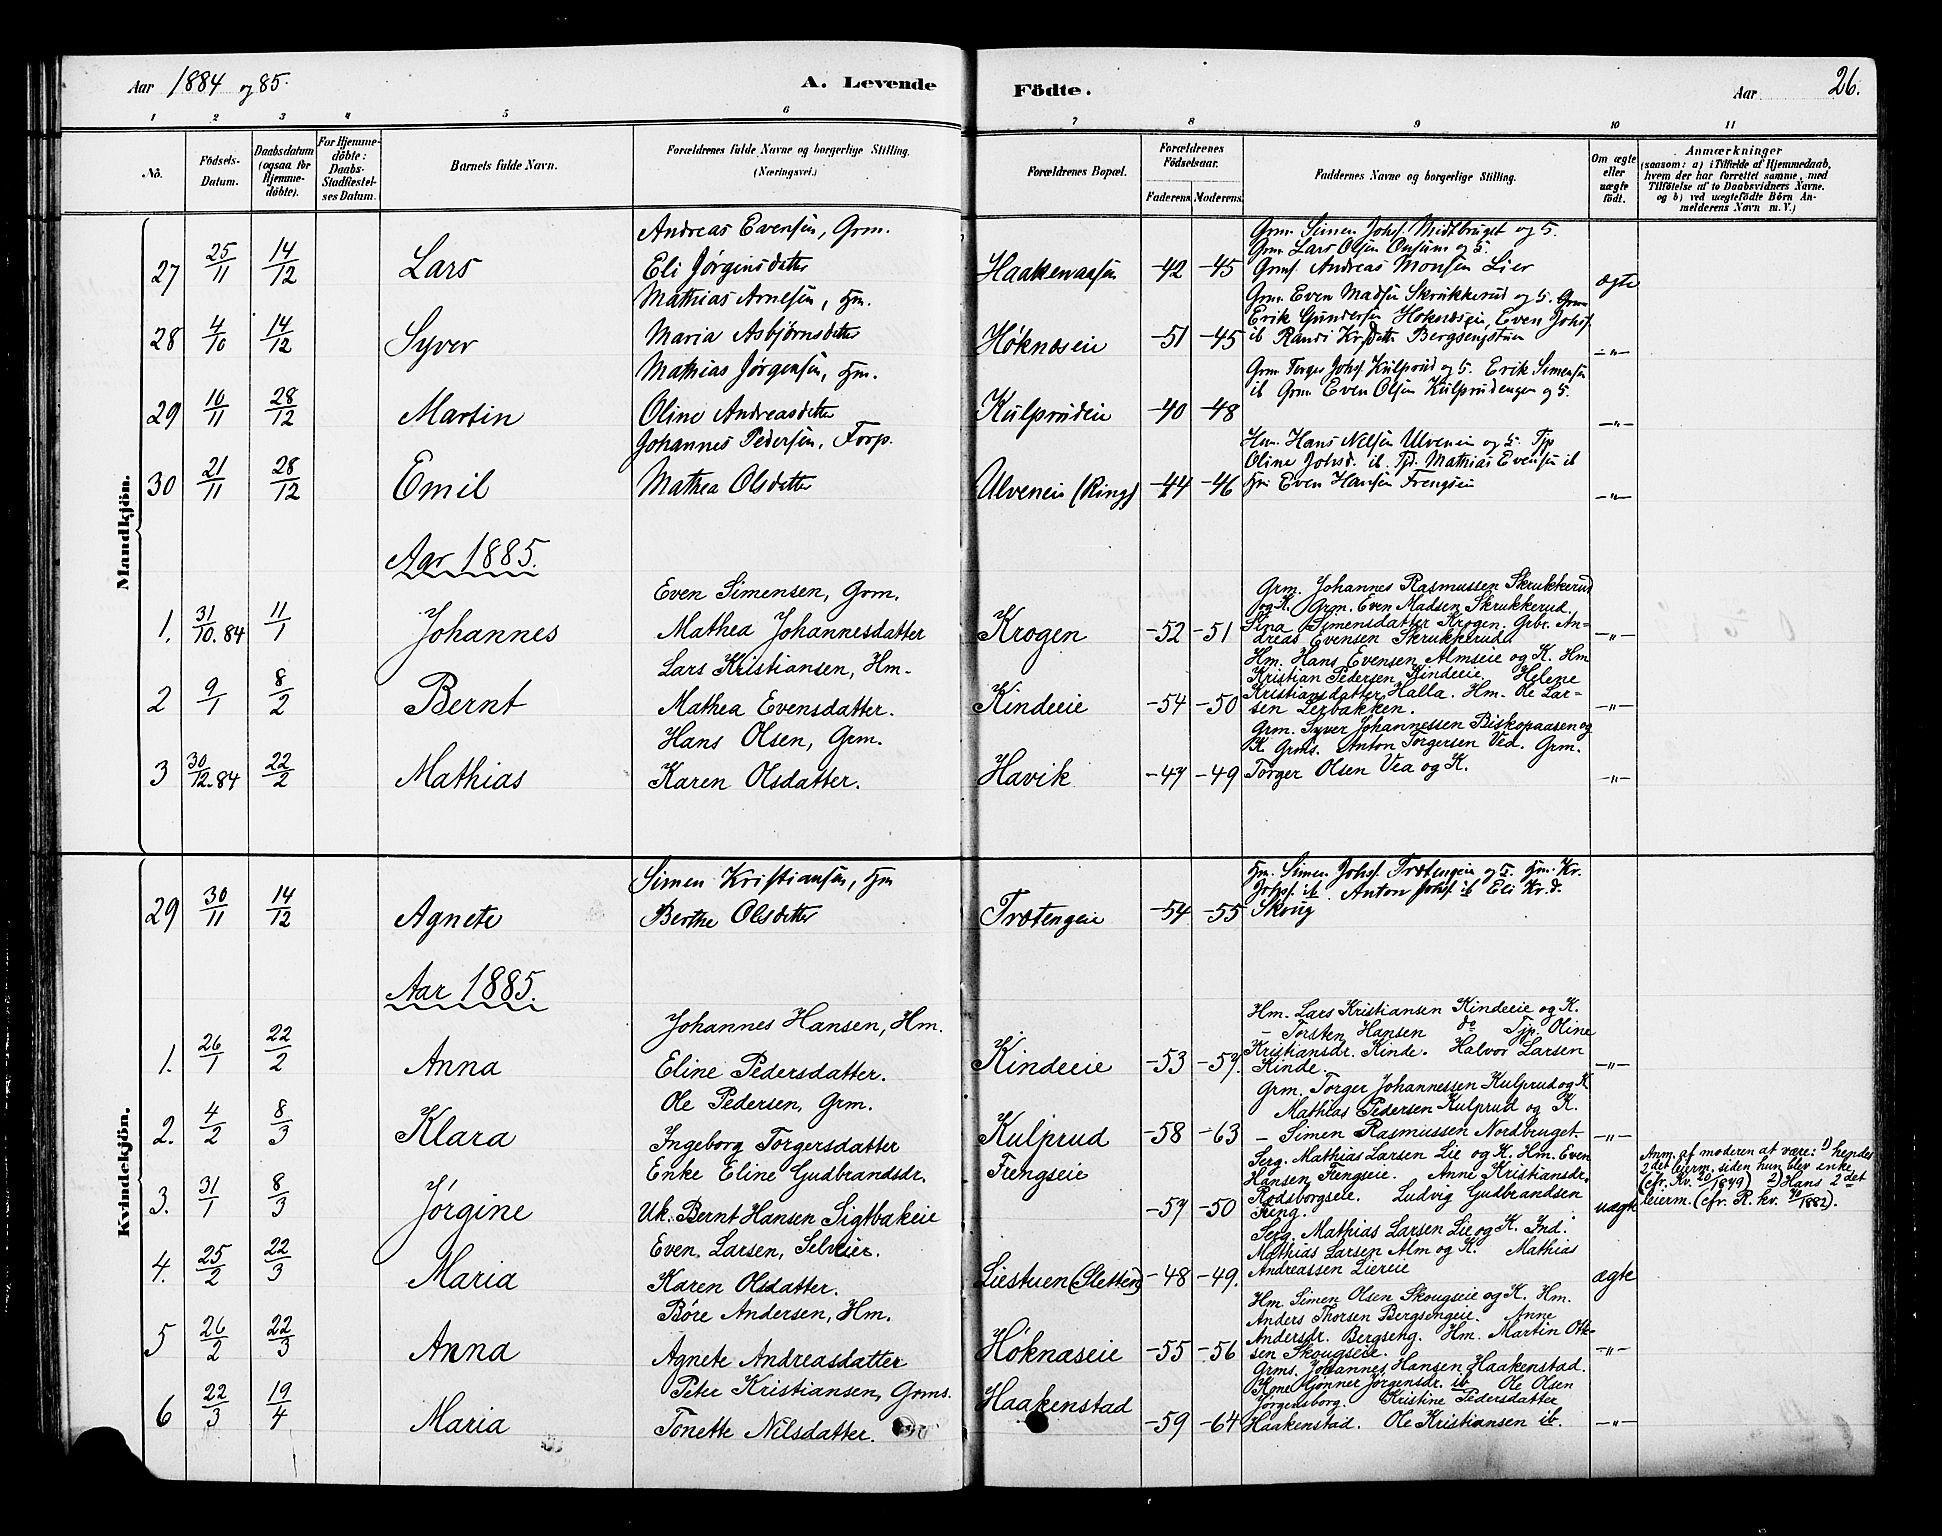 Aar 1884 og 85.
A. Levende Födte.
Aar
26.
1 2 3 4 5 6 7 8 9 10 11
No.
Födsels-Datum.
Daabsdatum (ogsaa for Hjemme-döbte).
For Hjemme-döbte: Daabs-Stadfæstel-ses Datum.
Barnets fulde Navn.
Forældrenes fulde Navne og borgerlige Stilling. (Næringsvei.)
Forældrenes Bopæl.
Forældrenes Födselsaar.
Faderens. Moderens.
Faddernes Navne og borgerlige Stilling.
Om ægte eller uægte født.
Anmærkninger
(saasom: a) i Tilfælde af Hjemmedaab,
hvem der har forrettet samme, med
Tilföielse af to Daabsvidners Navne.
og b) ved uægtefödte Börn An-
melderens Navn m. V.)
Mandkjön.
27 25/11 14/12 Lars
Andreas Evensen, Grm.
Eli Jørginsdatter
Haakenaasen -42 -45
Grm. Simen Johs. Midtbruget og
Grm Lars Olsen Onsum og
Grms. Andreas Monsen Lier
ægte
28 4/10 14/12 Syver
Mathias Arnesen, Hm.
Maria Asbjørnsdatter
Høknæseie -51 -45
Grm. Even Madsen Skrukkerud og Grm
Erik Gundersen Høknæseie, Even Johs.
ib Randi Kr.datter Bergsengstuen
-"-
29 10/11 28/12 Martin
Mathias Jørgensen, Hm.
Oline Andreasdatter
Kulprudeie -40 -48
Grm Torger Johs. Kulprud og Erik Simensen
ib Grm Even Olsen Kulprudengen og
-"-
30 21/11 28/12 Emil
Johannes Pedersen, Forp.
Mathea Olsdatter
Ulveneie (Rings) -44 -46
Hm. Hans Nilsen Ulveneie og Tjp
Oline Johsd. ib. Tjd. Mathias Evensen ib
Hm Even Hansen Frengseie
-"-
Aar 1885.
1. 31/10.84 11/1 Johannes
Even Simensen, Grm.
Mathea Johannesdatter
Krogen -52 -51
Grm. Johannes Rasmussen Skrukkerud
og K. Grm. Even Madsen Skrukkerud.
Sina Simensdatter Krogen. Grbr. An-
dreas Evensen Skrukkerud.
-"-
2 9/1 8/2 Bernt
Lars Kristiansen, Hm.
Mathea Evensdatter.
Kindeeie -54 -50
Hm. Hans Evensen Almseie og K. Hm
Kristian Pedersen Kindeeie. Helene
Kristiansdatter Halla. Hm. Ole Lar-
sen Lerbakken.
-"-
3 30/12.84 22/2 Mathias
Hans Olsen, Grm.
Karen Olsdatter.
Havik -47 -49
Grm. Syver Johannessen Biskopaasen og
K. Grms. Anton Torgersen Ved. Grm.
Torger Olsen Vea og K.
-"-
Kvindekjön.
29 30/11 14/12 Agnete
Simen Kristiansen, Hm
Berthe Olsdatter
Trotengeie -54 -55
Hm. Simen Johs. Trotengeie og Hm. Kr.
Johs. ib Anton Johs ib Eli Kr.d.
Skoug
Aar 1885.
1. 26/1 22/2 Anna
Johannes Hansen, Hm.
Eline Pedersdatter.
Kindeeie -53 -57.
Hm. Lars Kristiansen Kindeeie og K.
- Torsten Hansen do Tjp. Oline
Kristiansdr. Kinde. Halvor Larsen
Kinde.
-"-
2. 4/2 8/3 Klara
Ole Pedersen, Grm.
Ingeborg Torgersdatter
Kulprud -58 -63
Grm. Torger Johannessen Kulprud og K
Mathias Pedersen Kulprud og K.
- Simen Rasmussen Nordbruget.
-"-
3. 31/1 8/3 Jørgine
Enke Eline Gudbrandsdr.
Uk. Bernt Hansen Sigtbakeie
Frengseie -57 -50
Serg. Mathias Larsen Lie og K. Hm. Even
Hansen Frengseie. Anne Kristiansdr.
Rodsborgseie. Ludvig Gudbrandsen
Freng.
uægte
Anm. af moderen at være: 1) hendes
2det leierm. siden hun blev enke
(cfr. Kv. 20/1849) 2) Hans 2det
leierm. (cfr. R. kv. /1882).
4. 25/2 22/3 Maria
Even Larsen, Selveier.
Karen Olsdatter.
Liestuen (Sletten) -48 -49.
Serg. Mathias Larsen Lie og K. Ind.
Mathias Larsen Alm og K. Mathias
Andreassen Liereie
ægte
5 26/2 22/3 Anna
Böre Andersen, Hm.
Agnete Andreasdatter
Høknæseie -55 -56
Hm. Simen Olsen Skougseie og K. Hm.
Anders Thorsen Bergsengeie. Anne
Andersdr. Bergseng. Hm. Martin Ol-
sen Skougseie.
-"-
6 22/3 19/4 Maria
Peter Kristiansen, Grms.
Tonette Nilsdatter.
Haakenstad -59 -64
Grms. Johannes Hansen Haakenstad.
Kone Gønner Jørgensdr. ib Ole Olsen
Jørgensborg. Kristine Pedersdatter
Haakenstad. Ole Kristiansen ib.
-"-